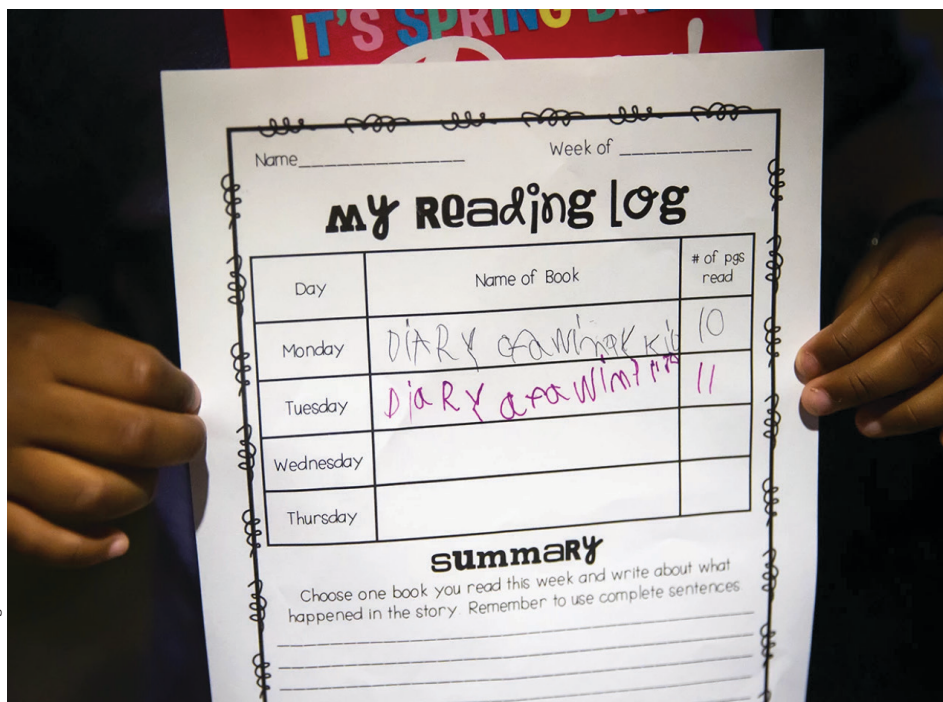 IT'S SPRING
Name Week of
My Reading Log
Day Name of Book # of pgs read
Monday DiARY ofawimpy kid 10
Tuesday DiaRY ofawimpy 11
Wednesday
Thursday
Summary
Choose one book you read this week and write about what
happened in the story. Remember to use complete sentences